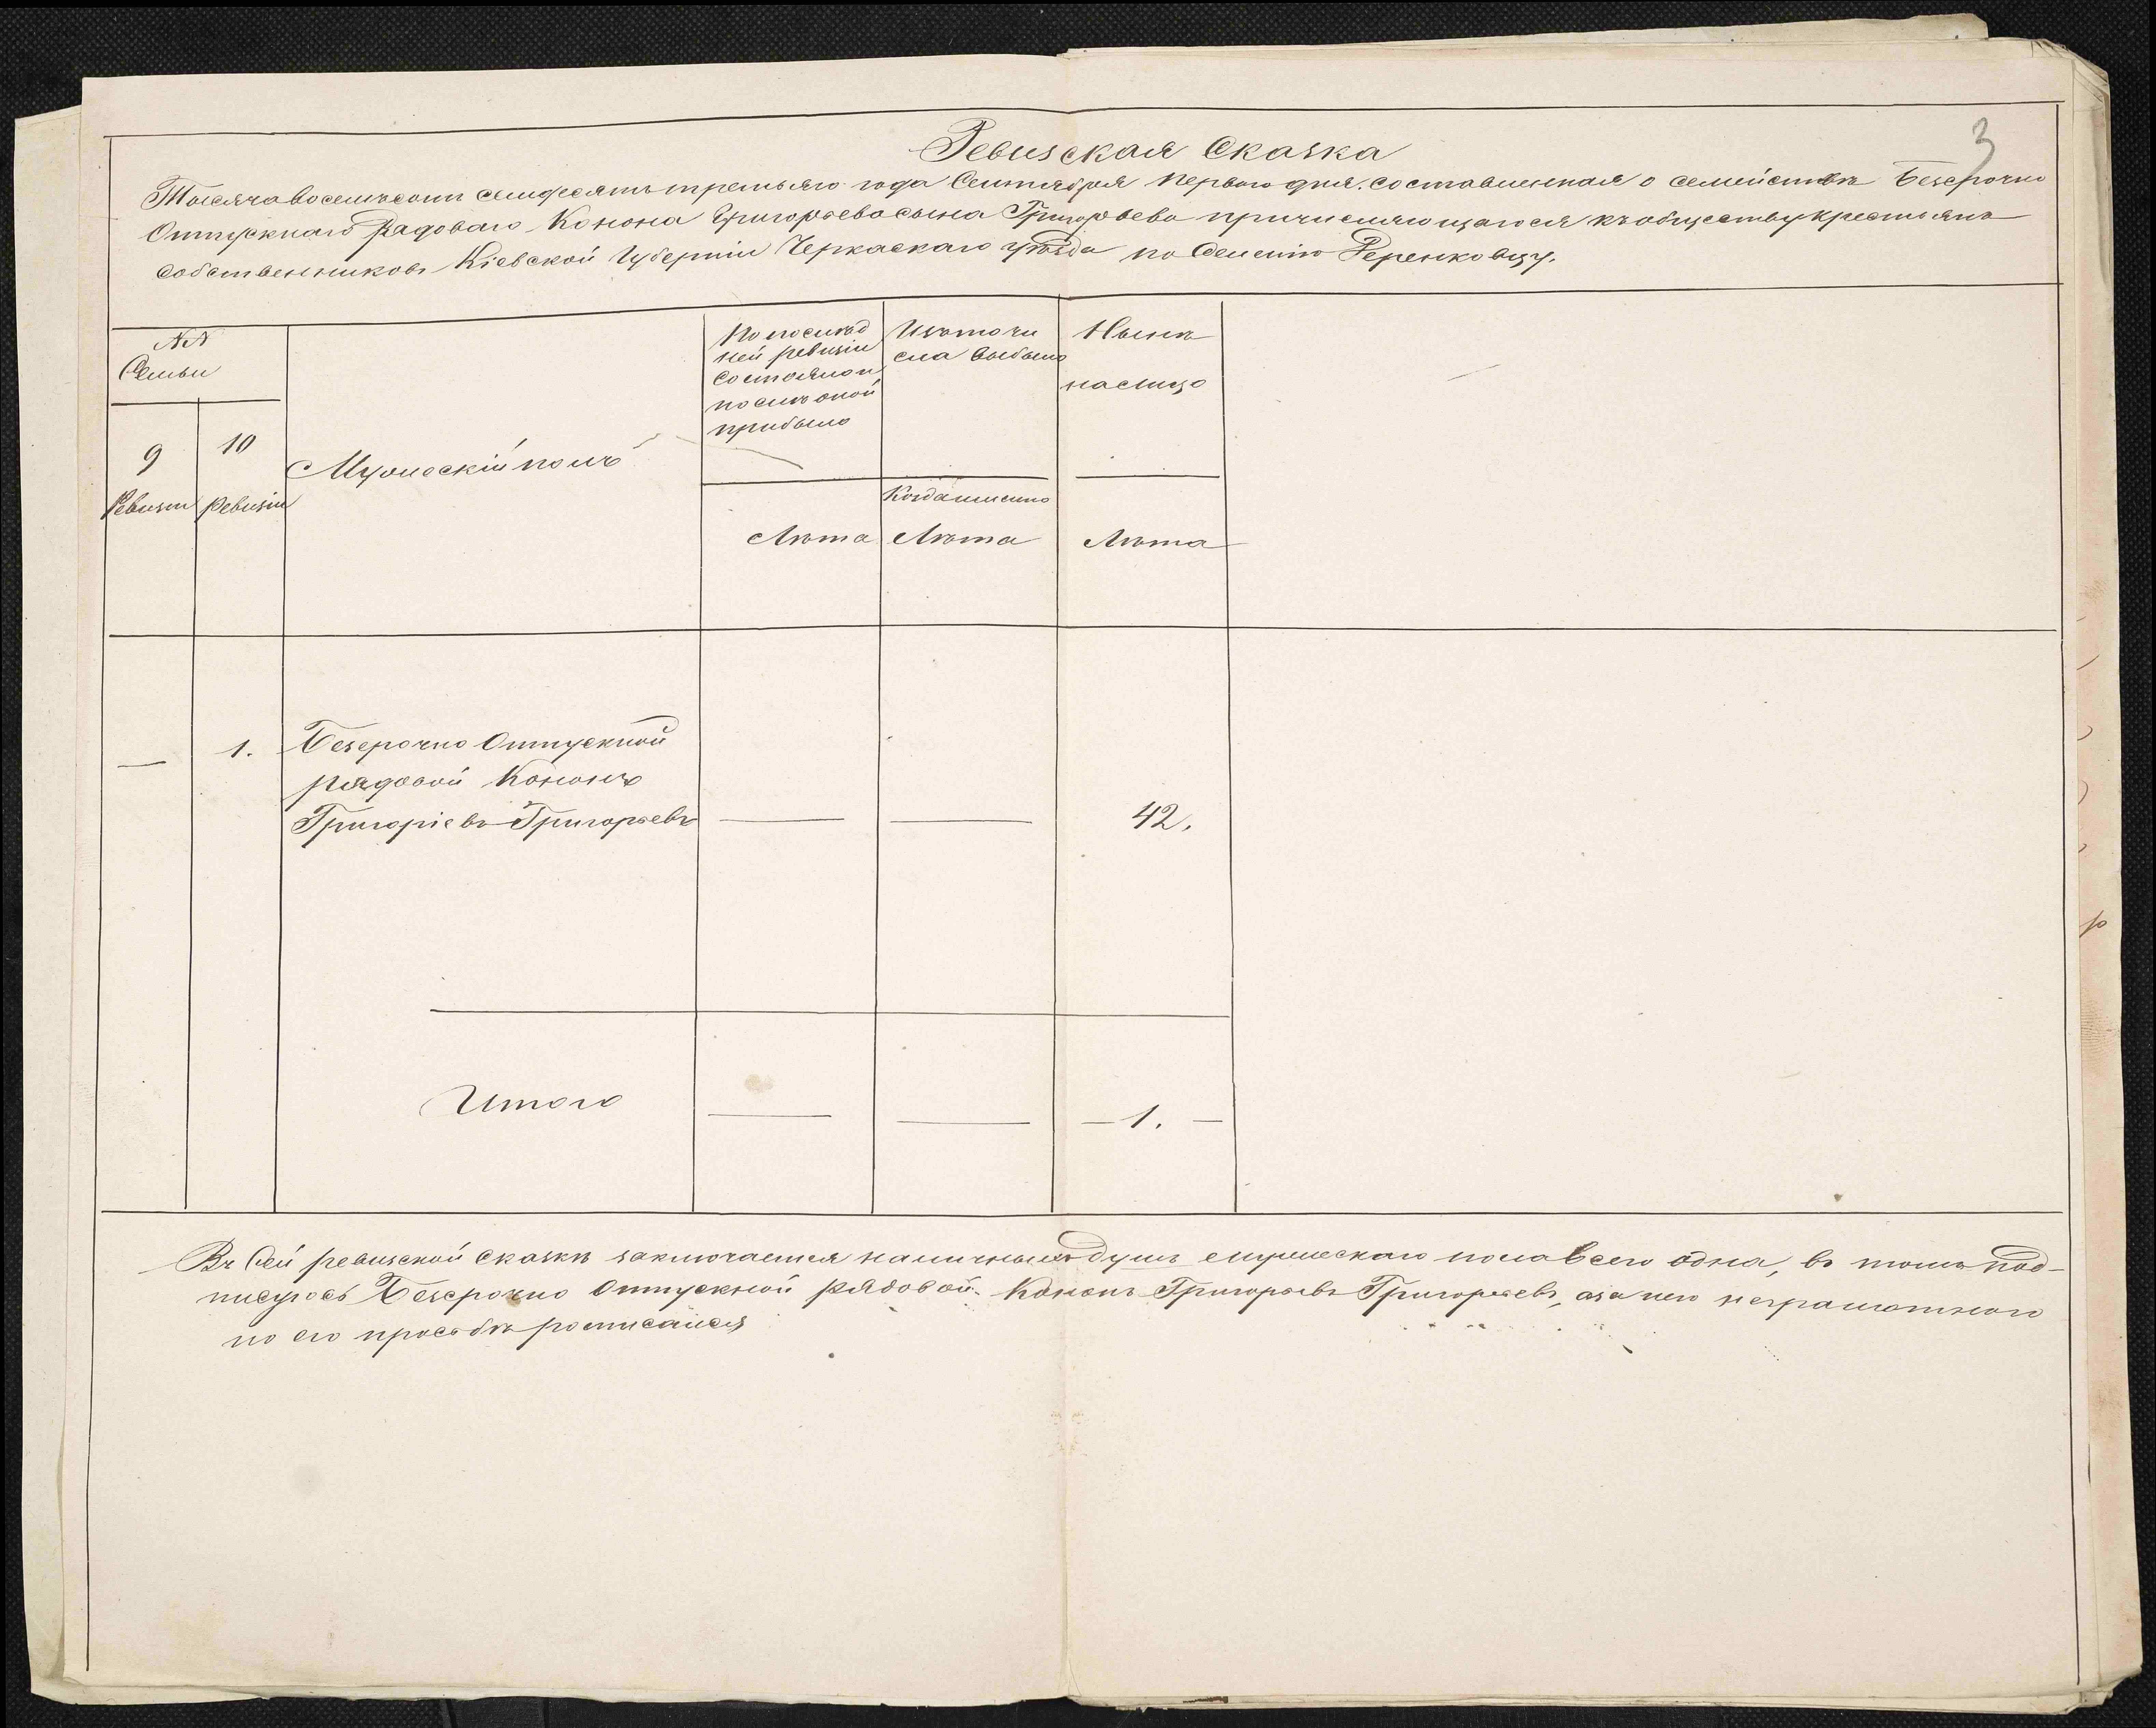 3
Ревизская Сказка
Тысяча восемьсотъ семдесятъ третьяго года Сентября перваго дня. составленная о семействѣ Безсрочно
Отпускнаго Рядоваго Конона Григорьева сына Григорьева причисляющагося къ обществу крестьянъ
собственниковъ Кіевской Губерніи Черкаскаго уѣзда по Селенію Деренковцу.
№№
Семьи
9
Ревизіи
10
ревизіи
Мужескій полъ
По послѣд
ней ревизіи
состояло и
послѣ оной
прибыло
Лѣта
Изъ того чи
сла выбыло
Когда именно
Лѣта
Нынѣ
налицо
Лѣта
— 1. Безсрочно Отпускной
рядовой Кононъ
Григоріевъ Григорьевъ — — 42.
Итого — — — 1. —
Въ Сей ревизской Сказкѣ заключается наличныхъ душъ мужескаго пола всего одна, въ томъ под-
писуюсь Безсрочно Отпускной рядовой Кононъ Григорьевъ Григорьевъ, а за него неграмотного
по его просьбѣ росписался